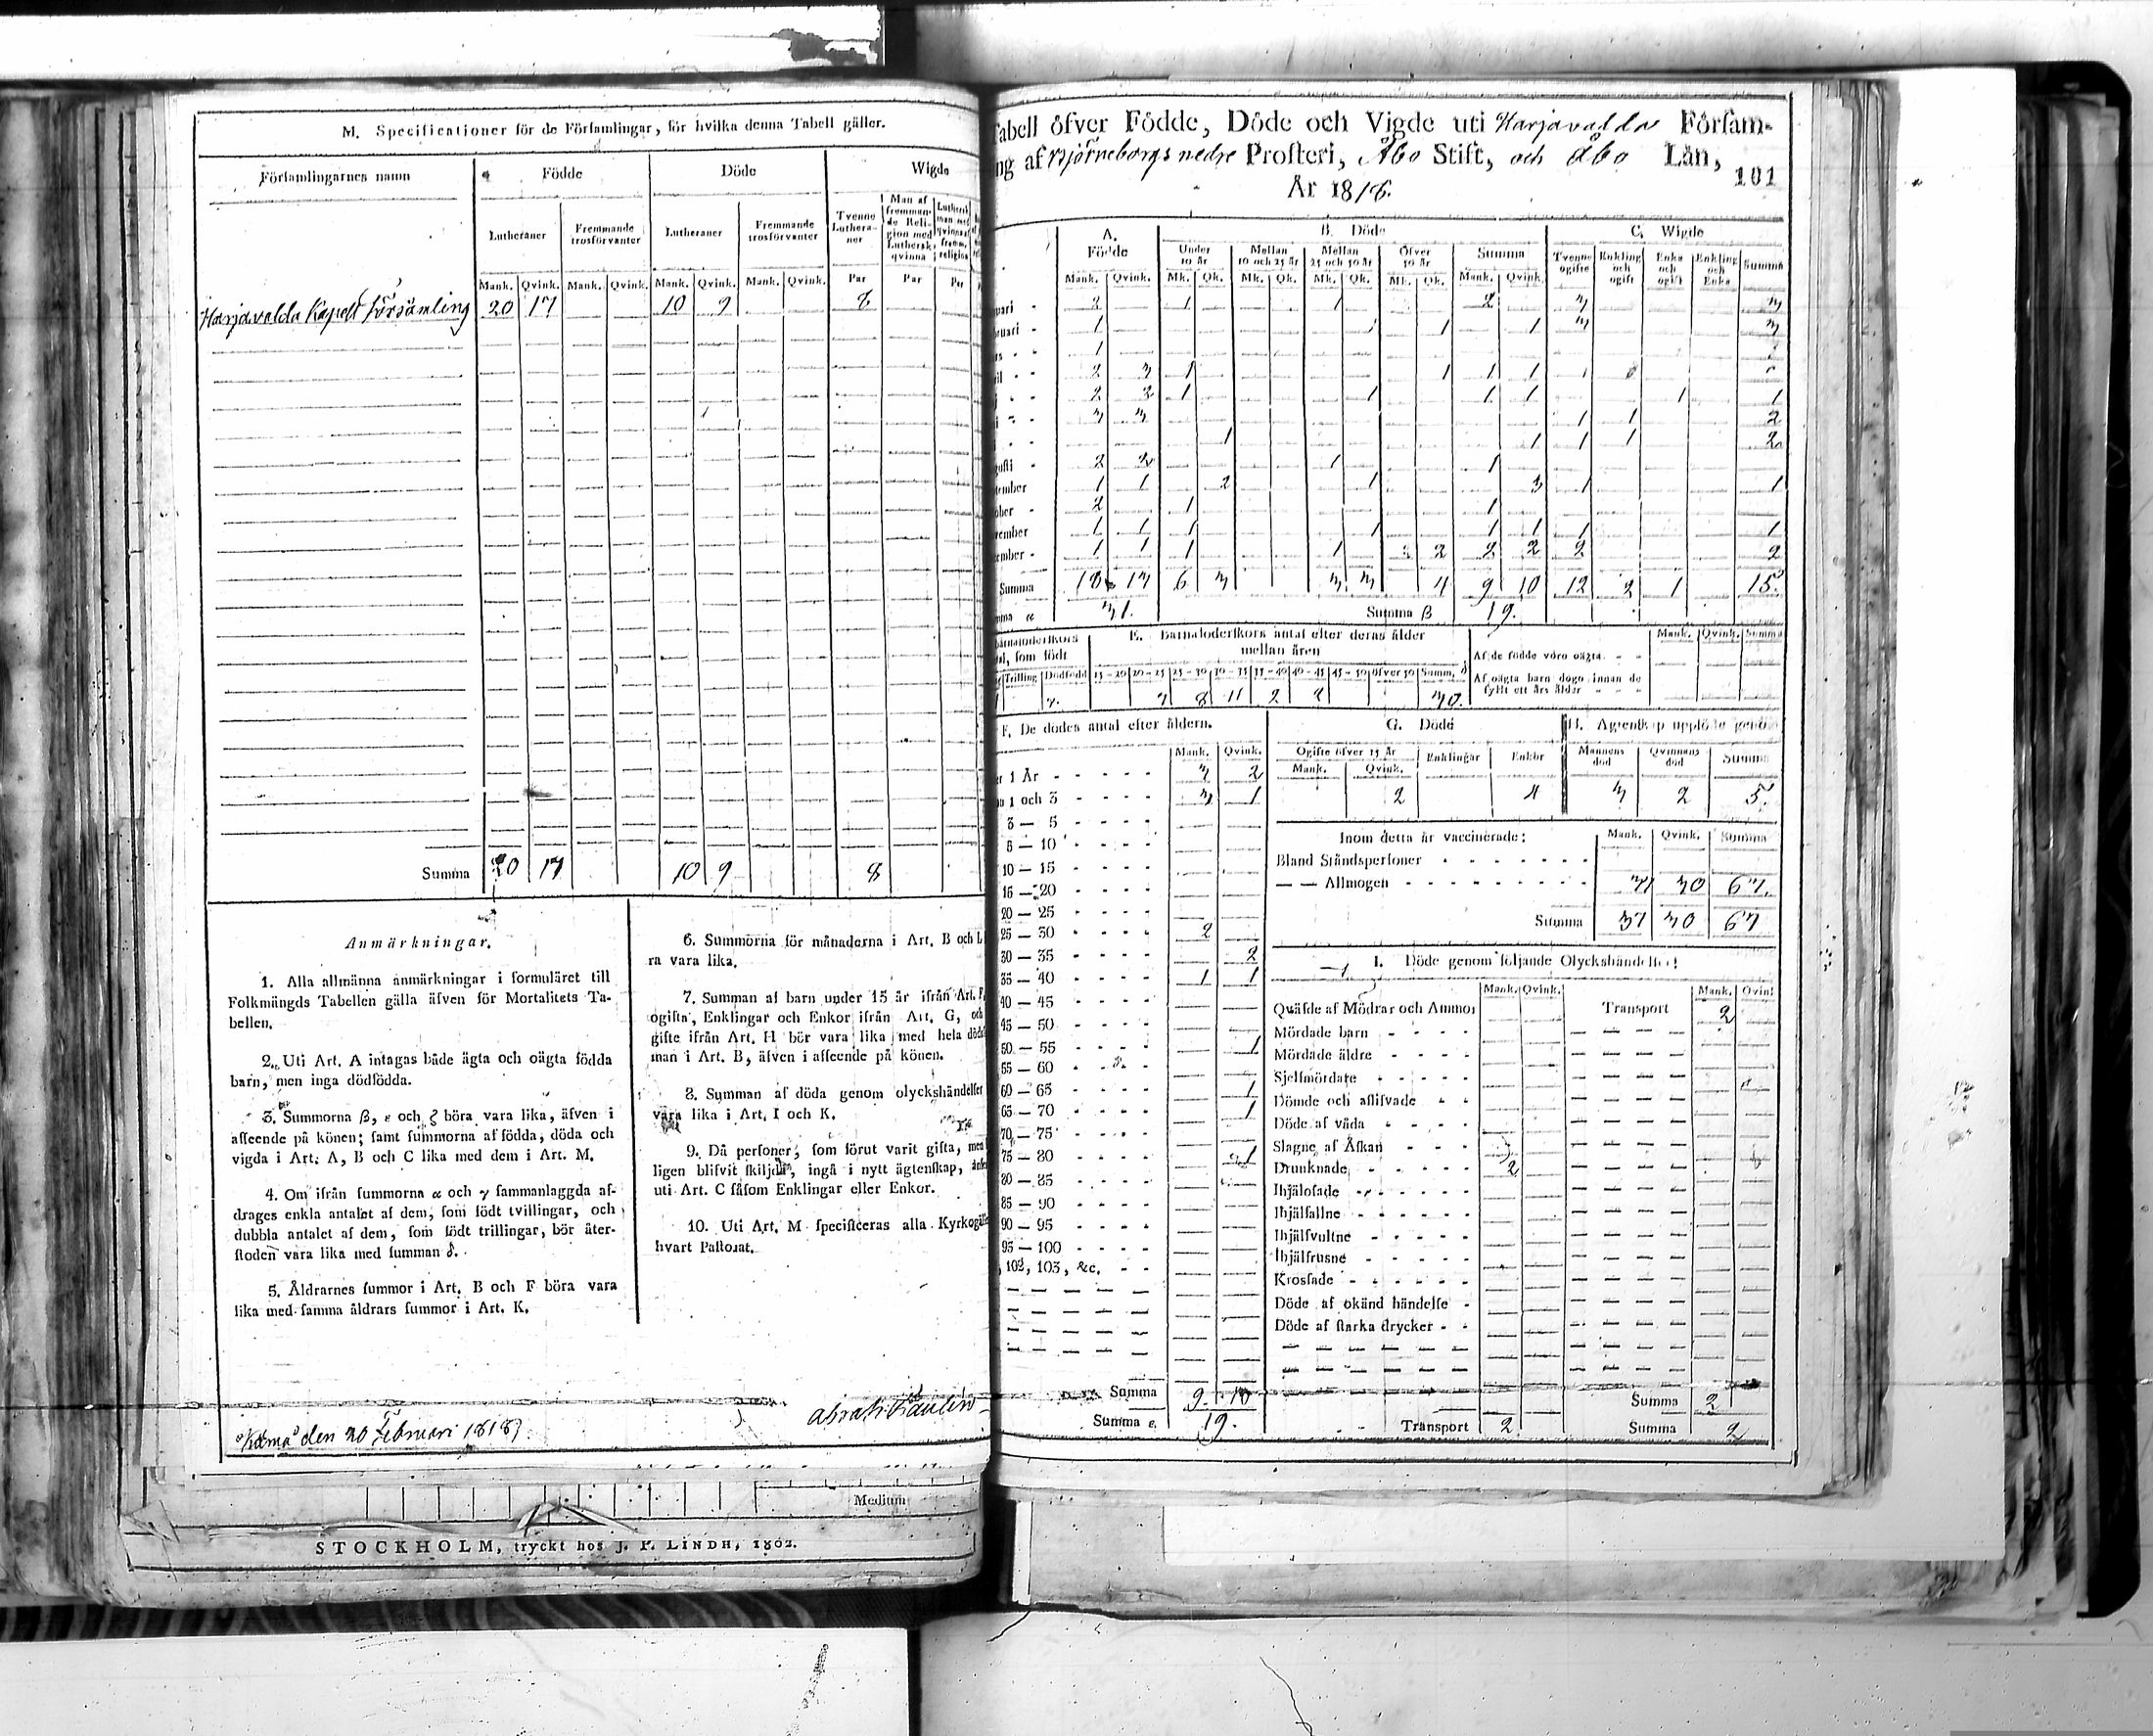 M. Specificationer för de Församlingar, för hvilka denna Tabell gäller.
Församlingarnes namn Födde Döde Wigde
Lutheraner Fremmande trosförvanter Lutheraner Fremmande trosförvanter Tvenne Lutheraner Man af fremmande Religion med Luthersk qvinna
Mank. Qvink. Mank. Qvink. Mank. Qvink. Mank. Qvink. Par Par Par
Harjavalda Kapell församling 20 17 10 9 8
Summa 20 17 10 9 8
Anmärkningar.
1. Alla allmänna anmärkningar i formuläret till
Folkmängds Tabellen gälla äfven för Mortalitets Ta-
bellen.
2. Uti Art. A intagas både ägta och oägta födda
barn, men inga dödfödda.
3. Summorna ß, ε och ζ böra vara lika, äfven i
afseende på könen; samt summorna af födda, döda och
vigda i Art. A, B och C lika med dem i Art. M.
4. Om ifrån summorna α och γ sammanlaggda af-
drages enkla antalet af dem, som födt tvillingar, och
dubbla antalet af dem, som födt trillingar, bör åter-
stoden vara lika med summan δ.
5. Åldrarnes summor i Art. B och F böra vara
lika med samma åldrars summor i Art. K.
6. Summorna för månaderna i Art. B och L
ra vara lika.
7. Summan af barn under 15 år ifrån Art. F,
ogifta, Enklingar och Enkor ifrån Art. G, och
gifte ifrån Art. H bör vara lika med hela döds
man i Art. B, äfven i afseende på könen.
8. Summan af döda genom olyckshändelser
vara lika i Art. I och K.
9. Då personer, som förut varit gifta, men
ligen blifvit skiljda, ingå i nytt ägtenskap,
uti Art. C såsom Enklingar eller Enkor.
10. Uti Art. M specificeras alla Kyrkogäl
hvart Pastorat.
den 20 Februari 1818
Medium
STOCKHOLM, tryckt hos J. P. LINDH, 1802.
Tabell öfver Födde, Döde och Vigde uti Harjavalda Försam
ng af Björneborgs nedre Prosteri, Åbo Stift, och Åbo Län,
101
År 1816.
A. Födde B. Döde C. Wigde
Under 10 år Mellan 10 och 25 år Mellan 25 och 50 år Öfver 50 år Summa Tvenne ogifte Enkling och ogift Enka och ogift Enkling och Enka Summa
Mank. Qvink. Mk. Qk. Mk. Qk. Mk. Qk. Mk. Qk. Mank. Qvink.
uari 2 1 1 2 3 3
bruari 1 1 1 3 3
rs 1
ril 2 3 1 1 1 1
2 2 1 1 1 1 1 1
3 3 1 1 2
1 1 1 1 2
gusti 2 2 1 1
tember 1 1 2 1 3 1 1
ober 2 1 1
vember 1 1 1 1 1 1 1 1
ember 1 1 1 1 2 2 2 2 2
Summa 18 13 6 3 3 3 4 9 10 12 2 1 15
31. Summa ß 19.
E. Barnaföderskors antal efter deras ålder
mellan åren
Trilling Dödfödd 15-20 20-25 25-30 30-35 35-40 40-45 45-50 öfver 50 Summ. δ
7 8 11 2 2 30.
Mank. Qvink. Summa
Af de födde voro oägta
Af oägta barn dogo innan de
fyllt ett års ålder
F. De dödes antal efter åldern.
Mank. Qvink.
r 1 År 3 2
1 och 3 3 1
3 — 5
5 — 10
10 — 15
15 — 20
20 — 25
25 — 30 2
30 — 35 2
35 — 40 1 1
40 — 45
45 — 50
50 — 55 1
55 — 60
60 — 65 1
65 — 70 1
70 — 75
75 — 80 1
80 — 85
85 — 90
90 — 95
95 — 100
, 102, 103, &c.
Summa 9 10
Summa ε. 19.
G. Döde
Ogifte öfver 15 år Enklingar Enkor
Mank. Qvink.
2 4
H. Ägtenskap upplöste genom
Mannens död Qvinnans död Summa
3 2 5.
Inom detta år vaccinerade: Mank. Qvink. Summa
Bland Ståndspersoner
— — Allmogen 37 30 67.
Summa 37 30 67
I. Döde genom följande Olyckshändelser!
Mank. Qvink. Mank. Qvink
Qväfde af Mödrar och Ammor Transport 2
Mördade barn
Mördade äldre
Sjelfmördare
Dömde och aflifvade
Döde af våda
Slagne af Åskan
Drunknade 2
Ihjälosade
Ihjälfallne
Ihjälsvultne
Ihjälfrusne
Krossade
Döde af okänd händelse
Döde af starka drycker
Summa 2
Transport 2 Summa 2